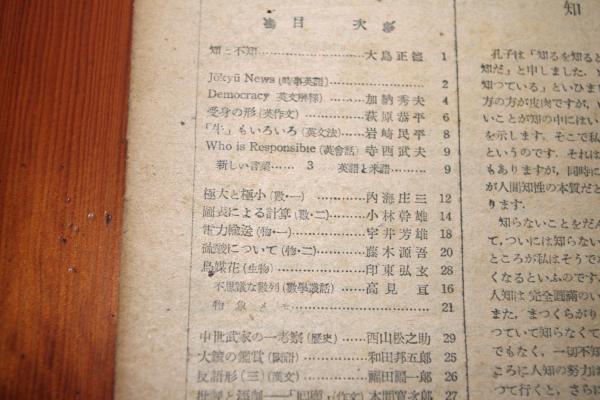 目次
知と不知 大島正徳 1
Jōkyū News (時事英語) 2
Democracy (英文解釋) 加納秀夫 4
受身の形 (英作文) 萩原恭平 6
「牛」もいろいろ (英文法) 岩崎民平 8
Who is Responsible (英會話) 寺西武夫 9
新しい言葉 3 英語と米語 9
極大と極小 (數・一) 內海庄三 12
圖表による計算 (數・二) 小林幹雄 14
電力輸送 (物・一) 宇井芳雄 18
硫酸について (物・二) 藤木源吾 20
鳥媒花 (生物) 印東弘玄 28
不思議な數列 (數學談話) 高見亘 16
物象メモ 21
中世武家の一考察 (歷史) 西山松之助 29
大鏡の鑑賞 (國語) 和田邦五郎 25
反語形(三) (漢文) 福田福一郎 26
(作文) 本間寛文郎 27
知
孔子は「知るを知ると
知だ」と申しました。
知つている」といひま
方の方が皮肉ですが、
いことが知の中にはい
を示します。そこで私
というのです。それは
もありますが、同時に
が人間知性の本質だと
ります。
知らないことをだん
て、ついには知らない
ところが私はそうでな
くなるといふのです。
人知は完全圓滿のい
また、まつくらがり
つていて知らなくて
でもなく、一切不知
ころに人知の努力は
つて行くと、さらに